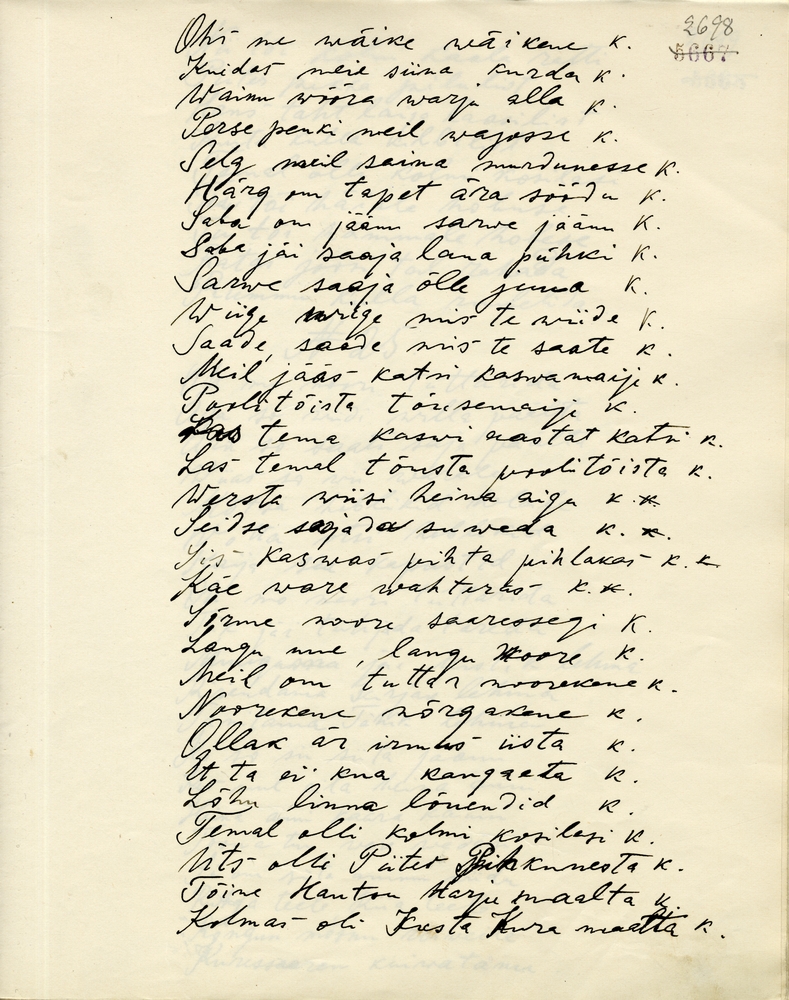 2698
5667
Ohis me wäike wäikene k.
Kuidas meie siina kurda k.
Wainu wööra warju alla k.
Perse penki meil wajosse k.
Selg meil saina murdunesse k.
Härg om tapet ära söödu k.
Saba om jäänu sarwe jäänu k.
Saba jäi saaja lana pühki k.
Sarwe saaja ölle juua k.
Wiige wiige mis te wiide k.
Saade, saade mis te saate k.
Meil jääs katsi kaswamaije k.
Poolitõista tõusemaije k.
Las tema kaswi aastat katsi k.
Las temal tõusta poolitõista k.
Wersta wiisi heina aigu k.
Seidse sajada suweda k.
Siis kaswas pihta pihlakas k.
Käe ware wahteras k.
Sirme noore saaressegi k.
Langu une, langu noore k.
Meil om tuttar noorekene k.
Noorekene nõrgakene k.
Ollak är irmus iista k.
Et ta ei kua kangaeta k.
Lõhu linna lõuendid k.
Temal olli kolmi kosilasi k.
Üts olli Piiter Pihkunesta k.
Töine Hanton Harju maalta k.
Kolmas oli Justa Kura maalta k.